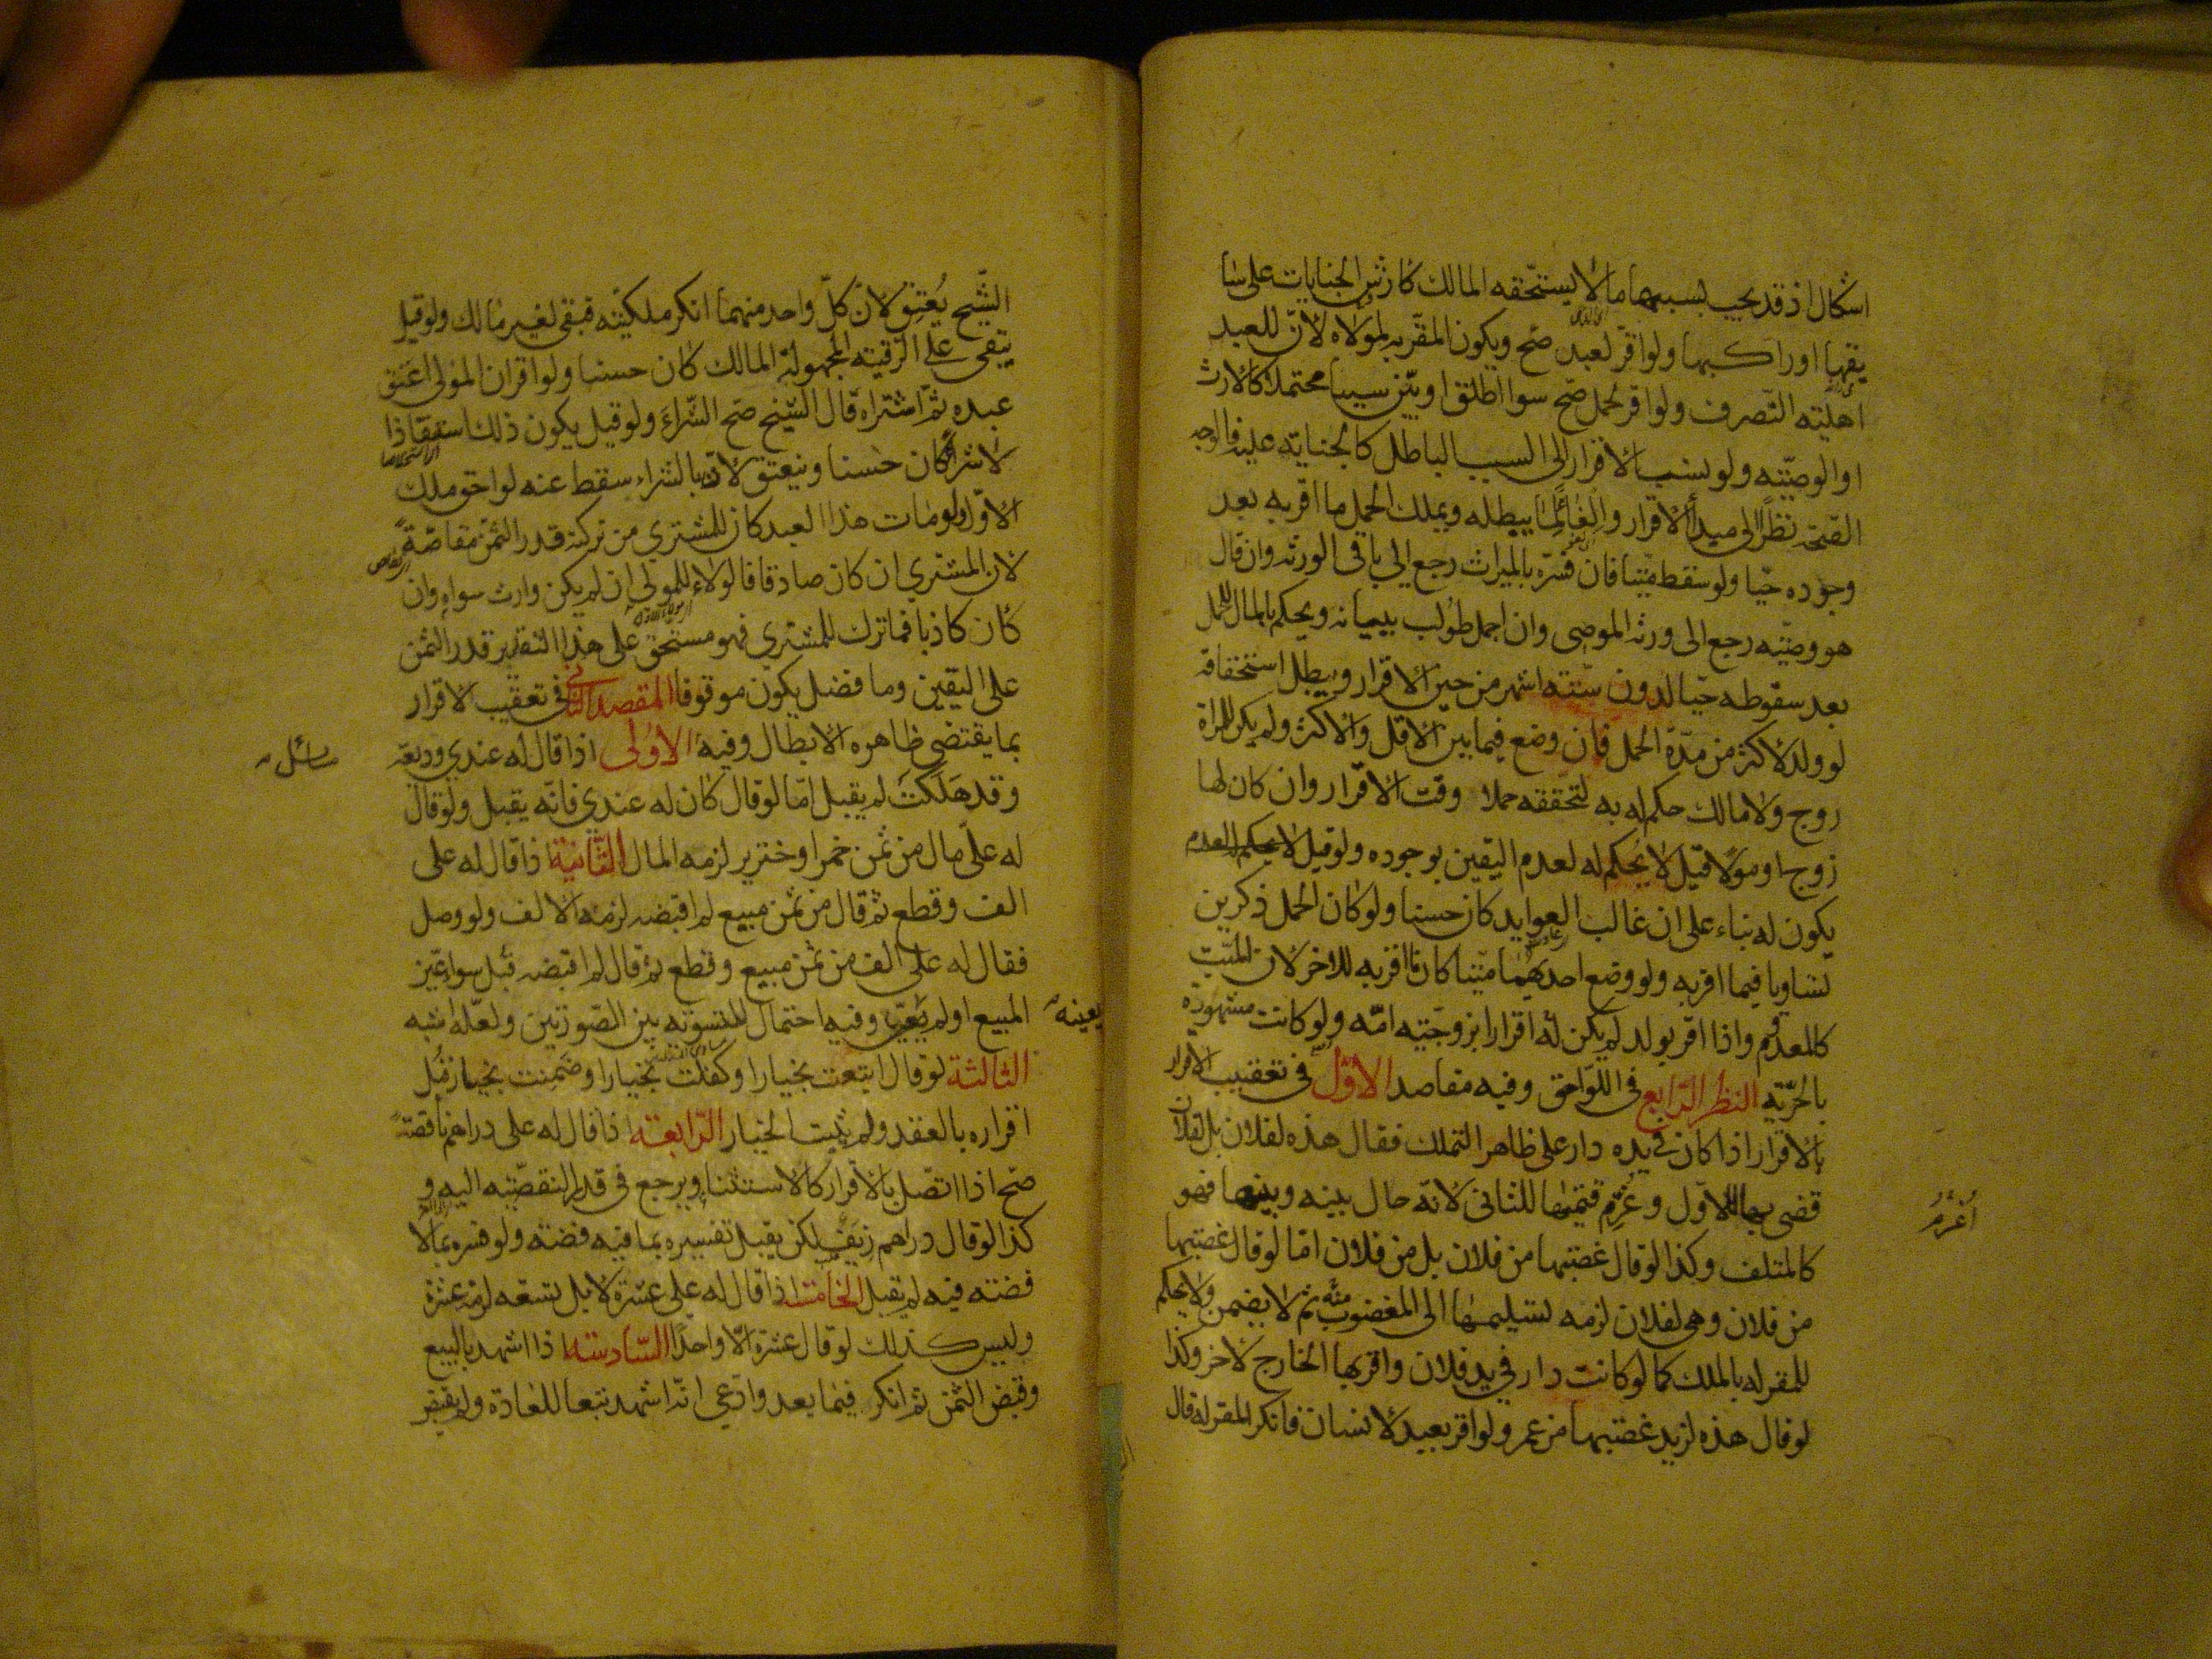 اشكال اذ قد يجب بسببها ما لا يستحقه المالك كارش الجنايات على سا
يقها او راكبها ولو اقر لعبد صح ويكون المقر به لمولاه لان للعبد
اهلية التصرف ولو اقر لحمل صح سوا اطلق او بين سببا محتملا كالارث
او الوصية ولو نسب الاقرار الى السبب الباطل كالجناية عليه فالوجه
الصحة نظرا الى مبدأ الاقرار والغا لما يبطله ويملك الحمل ما اقر به بعد
وجوده حيا ولو سقط ميتا فان فسره بالميراث رجع الى باقى الورثه وان قال
هو وصية رجع الى ورثه الموصى وان اجمل طولب ببيانه ويحكم بالمال للحمل
بعد سقوطه حيا لدون ستة اشهر من حين الاقرار ويبطل استحقاقه
لو ولد لاكثر من مدة الحمل فان وضع فيما بين الاقل والاكثر ولم يكن للمراة
زوج ولا مالك حكم له به لتحققه حملا وقت الاقرار وان كان لها
زوج او مولا قيل لا يحكم له لعدم اليقين بوجوده ولو قيل
يكون له بناء على ان غالب العوايد كان حسنا ولو كان الحمل ذكرين
تساويا فيما اقر به ولو وضع احدهما ميتا كان ما اقر به للاخر لان الميت
كالمعدوم واذا اقر بولد لم يكن له اقرارا بزوجيته امه ولو كانت مشهورة
بالحرية النظر الرابع فى اللواحق وفيه مقاصد الاول فى تعقيب الاقرار
بالاقرار اذا كان فى يده دار على ظاهر التملك فقال هذه لفلان بل لفلان
قضى بها للاول وغرم قيمتها للثانى لانه حال بينه وبينها فهو
اغرم
كالمتلف وكذا لو قال غصبتها من فلان بل من فلان اما لو قال غصبتها
من فلان وهى لفلان لزمه تسليمها الى المغصوب منه ثم لا يضمن ولا يحكم
للمقر له بالملك كما لو كانت دار فى يد فلان واقر بها الخارج لاخر وكذا
لو قال هذه لزيد غصبتها من عمر ولو اقر بعبد لانسان فانكر المقر له قال
الشيخ يعتق لان كل واحد منهما انكر ملكيته فبقى لغير مالك ولو قيل
يبقى على الرقية المجهولة المالك كان حسنا ولو اقر ان المولى اعتق
عبده ثم اشتراه قال الشيخ صح الشراء ولو قيل يكون ذلك استنقاذا
لا شراء كان حسنا وينعتق لانه بالشراء سقط عنه لواحق ملك
الاول ولو مات هذا العبد كان للمشترى من تركته قدر الثمن مقاصة
لان المشترى ان كان صادقا فالولاء للمولى ان لم يكن وارث سواه وان
كان كاذبا فما ترك للمشترى فهو مستحق على هذا التقدير قدر الثمن
على اليقين وما فضل يكون موقوفا المقصد الثانى فى تعقيب الاقرار
بما يقتضى ظاهره الابطال وفيه الاولى اذا قال له عندى وديعة
مسائل
وقد هلكت لم يقبل اما لو قال كان له عندى فانه يقبل ولو قال
له على مال من ثمن خمر او خنزير لزمه المال الثانية اذا قال له على
الف وقطع ثم قال من ثمن مبيع لم اقبضه لزمه الالف ولو وصل
فقال له على الف من ثمن مبيع وقطع ثم قال لم اقبضه قبل سوا عين
المبيع او لم يعينه وفيه احتمال للتسوية بين الصورتين ولعله اشبه
الثالثة لو قال ابتعت بخيار او كفلت بخيار او ضمنت بخيار قبل
اقراره بالعقد ولم يثبت الخيار الرابعة اذا قال له على دراهم ناقصة
صح اذا اتصل بالاقرار كالاستثناء ويرجع فى قدر النقصيه اليه و
كذا لو قال دراهم زيف لكن يقبل تفسيره بما فيه فضة ولو فسره بما لا
فضة فيه لم يقبل الخامسة اذا قال له على عشرة لا بل تسعه لزمه عشرة
وليس كذلك لو قال عشرة الا واحدا السادسة اذا اشهد بالبيع
وقبض الثمن ثم انكر فيما بعد وادعى انه اشهد تبعا للعادة ولم يقبض